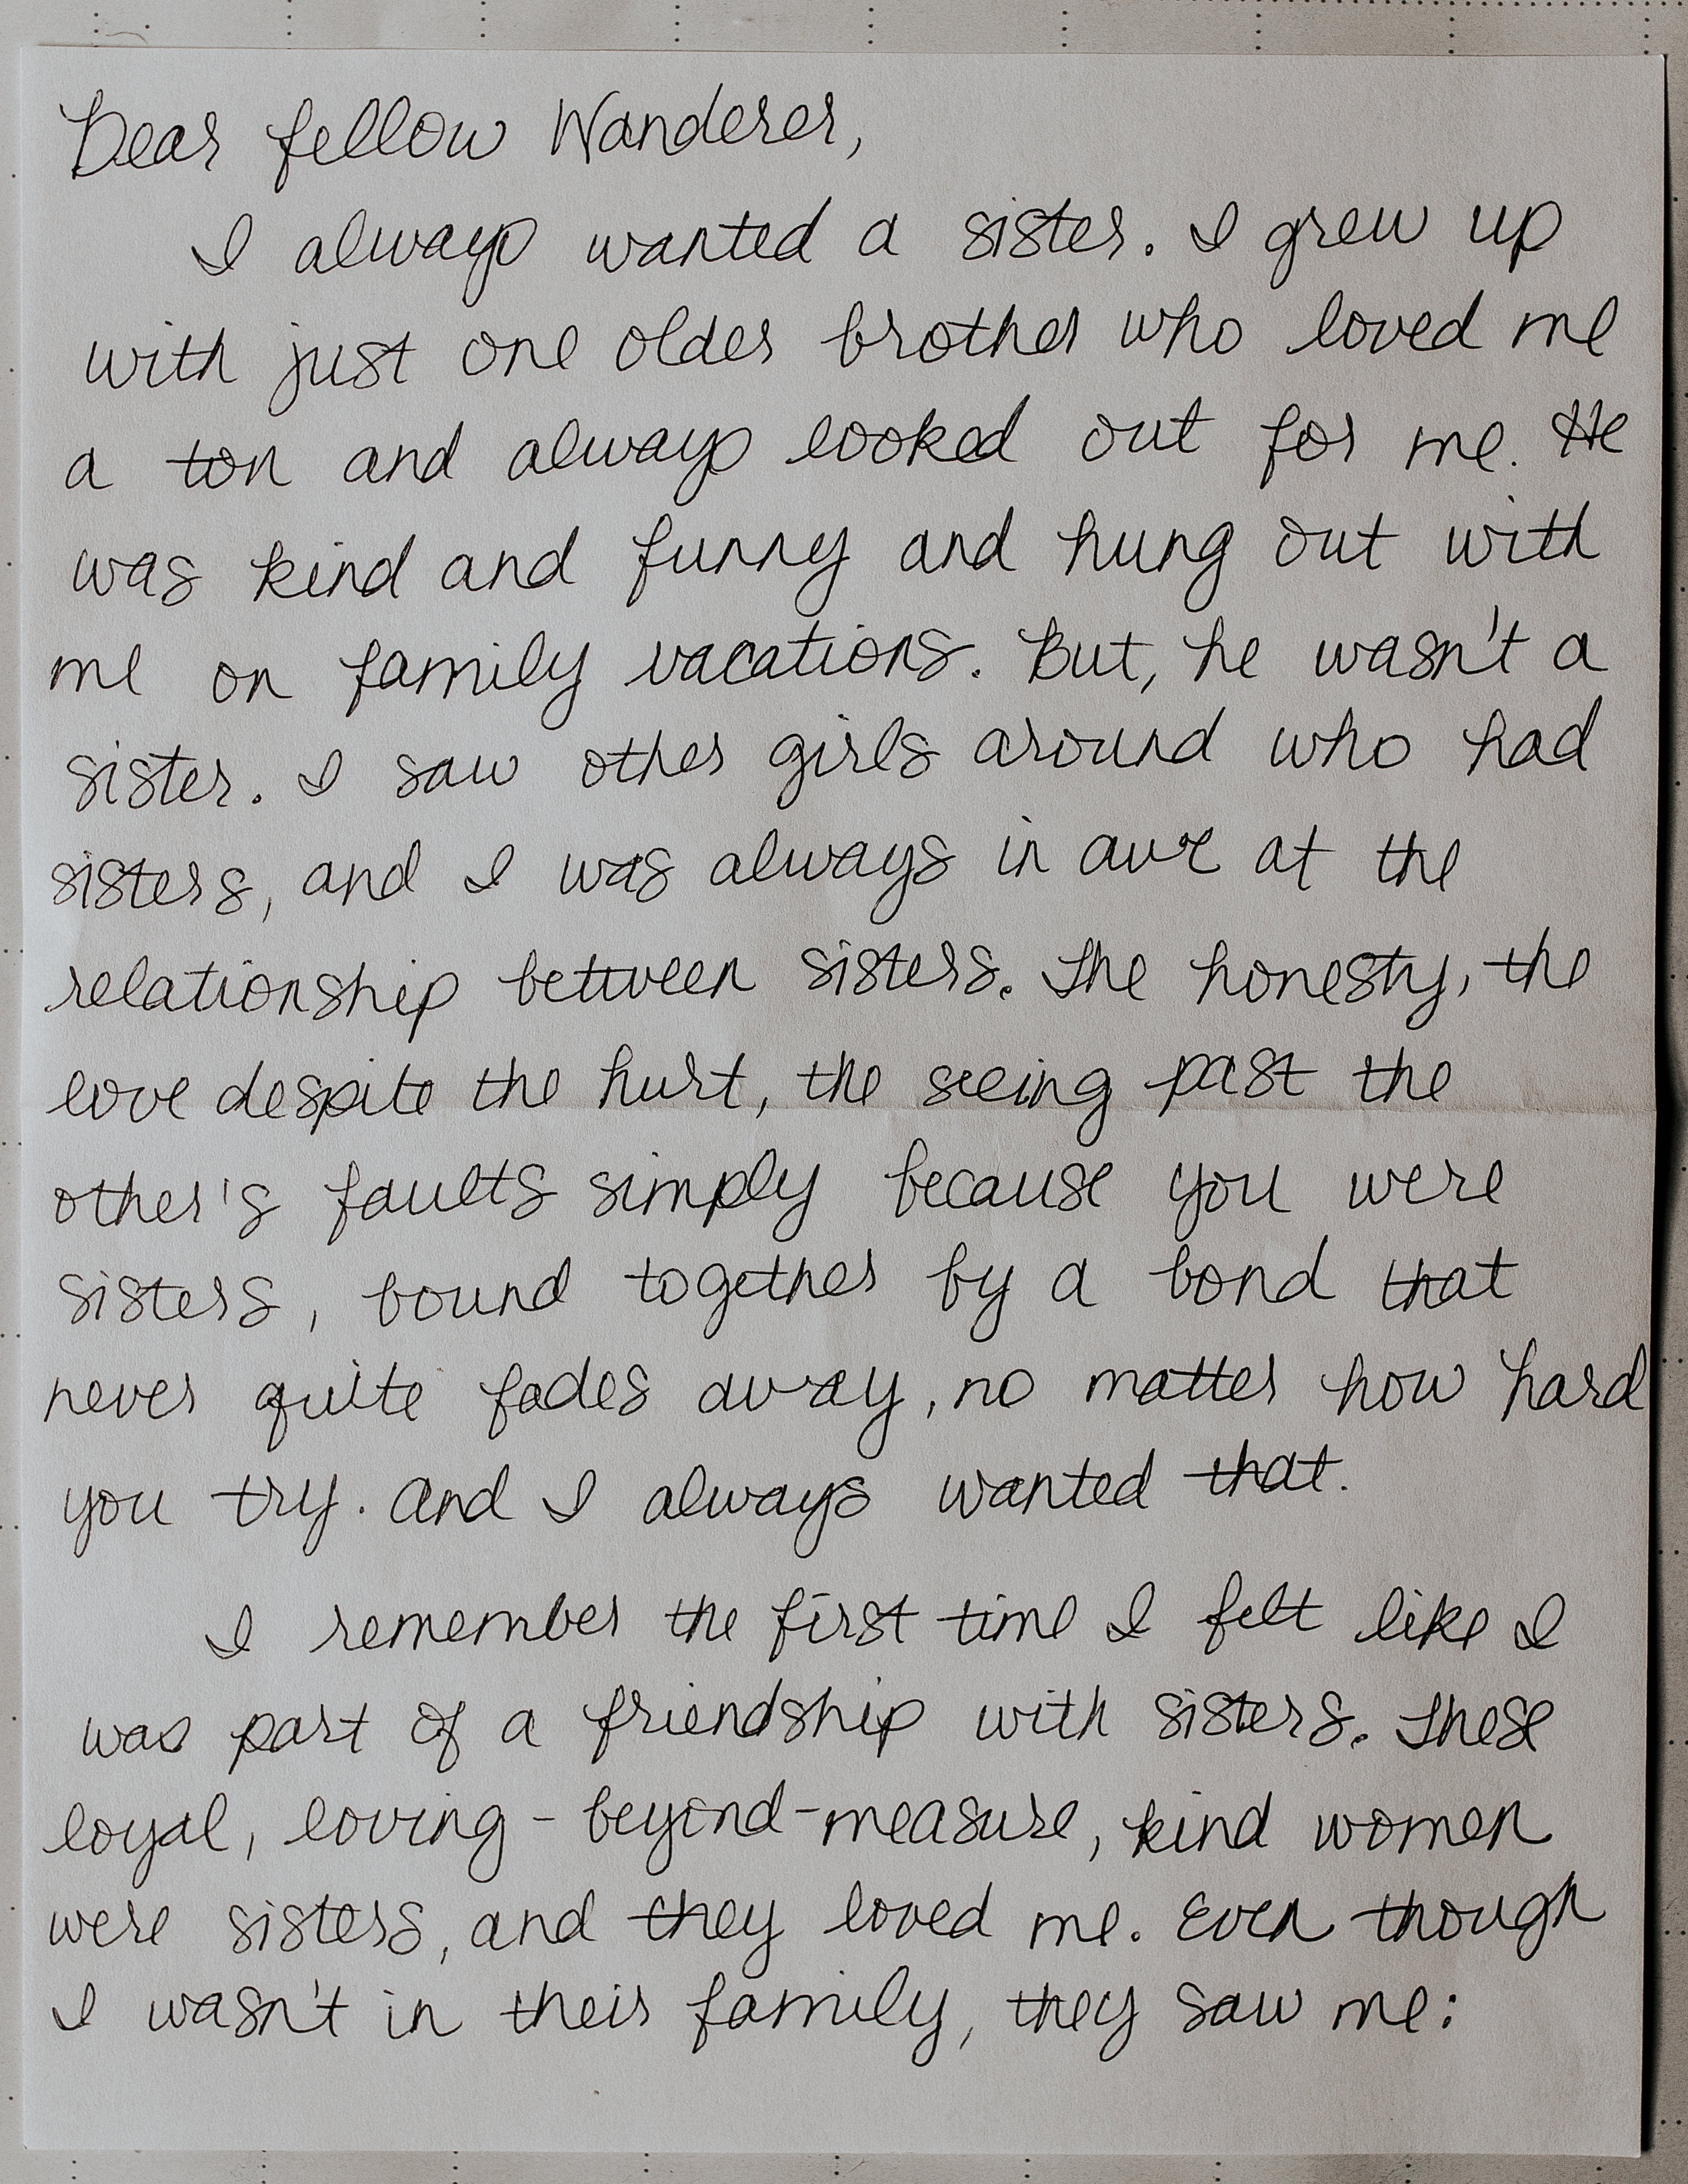 Dear fellow Wanderer,
I always wanted a sister. I grew up
with just one older brother who loved me
a ton and always looked out for me. He
was kind and funny and hung out with
me on family vacations. But, he wasn't a
sister. I saw other girls around who had
sisters, and I was always in awe at the
relationship between sisters. The honesty, the
love despite the hurt, the seeing past the
other's faults simply because you were
sisters, bound together by a bond that
never quite fades away, no matter how hard
you try. And I always wanted that.
I remember the first time I felt like I
was part of a friendship with sisters. These
loyal, loving-beyond-measure, kind women
were sisters, and they loved me. Even though
I wasn't in their family, they saw me: